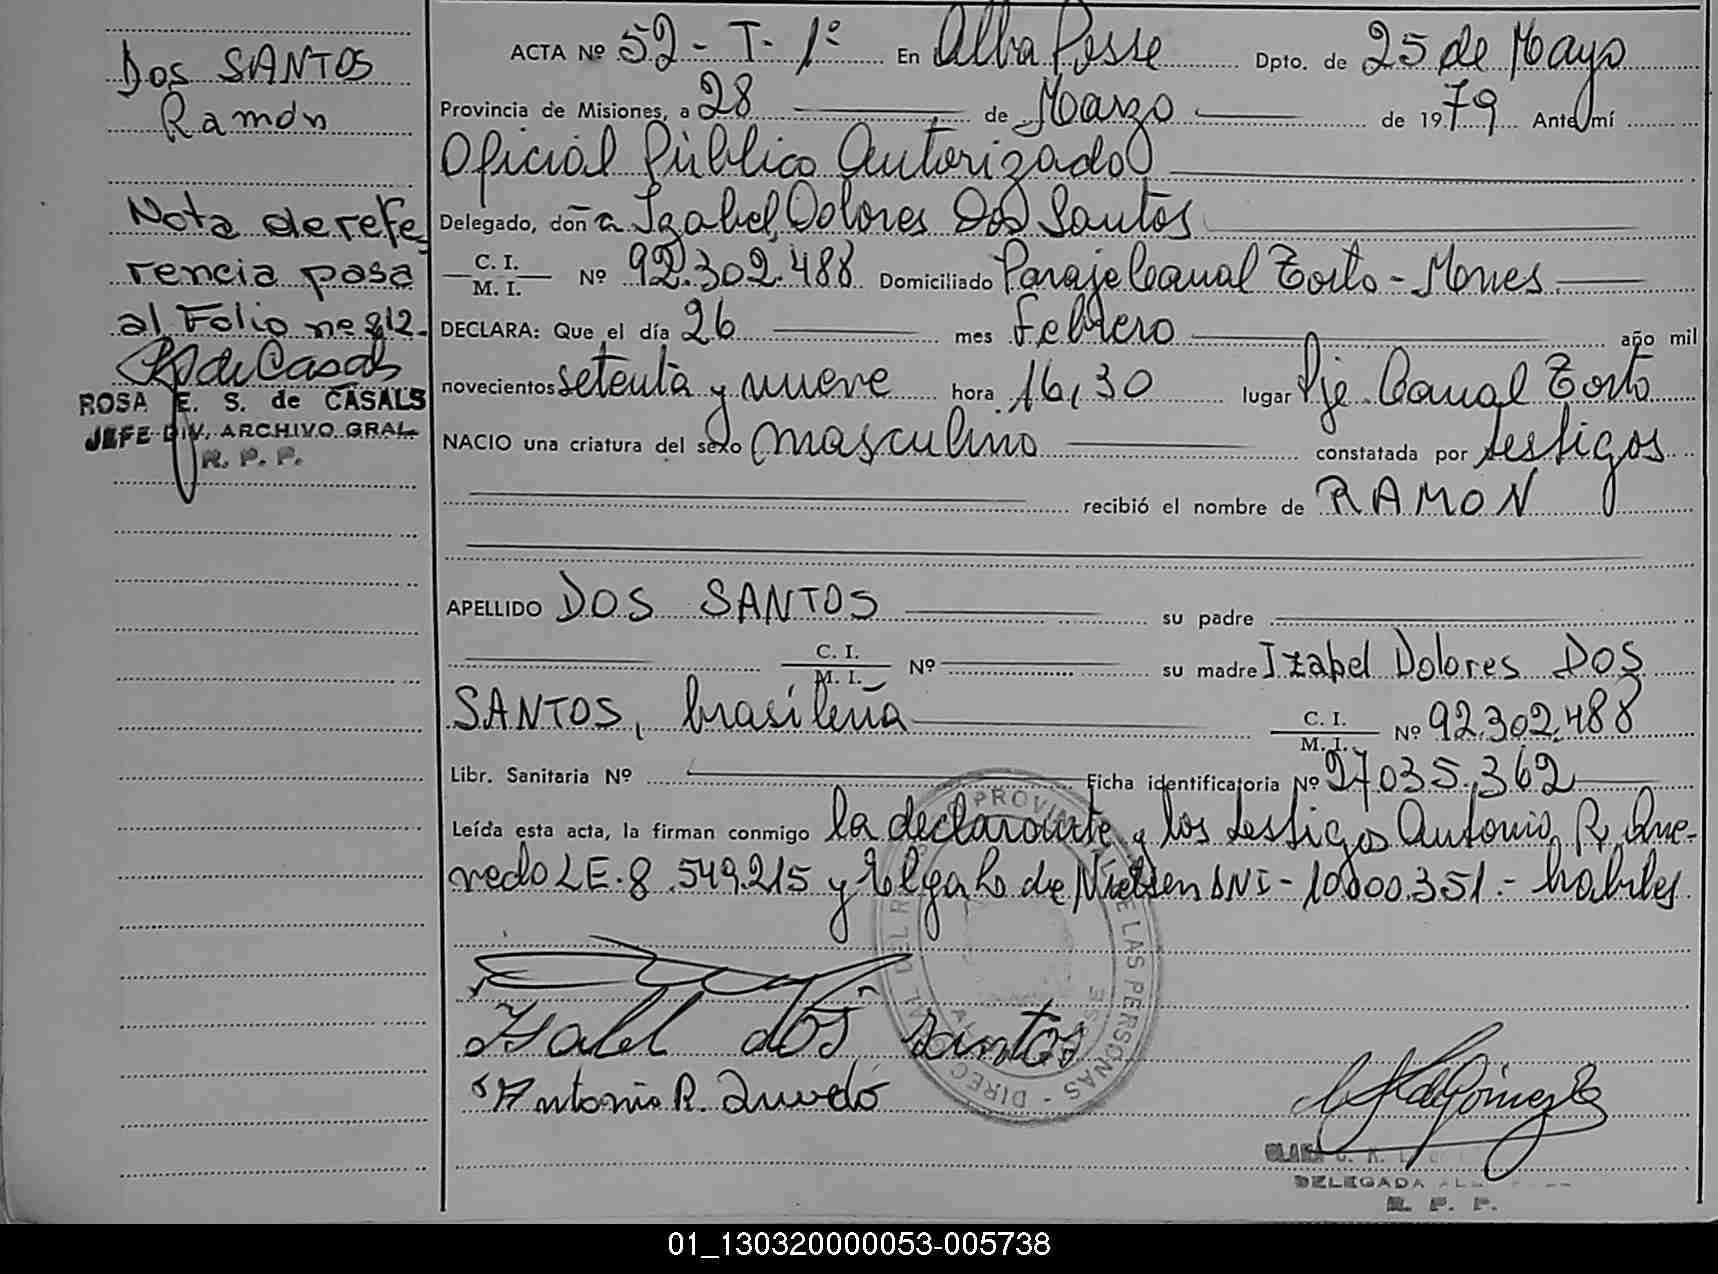 Dos SANTOS
Ramón
Nota de refe
rencia pasa
al Folio nº 212.
ROSA E. S. de CASALS
JEFE DIV. ARCHIVO GRAL.
R. P. P.
ACTA Nº 52 - T - 1º En Alba Posse Dpto. de 25 de Mayo
Provincia de Misiones, a 28 de Marzo de 1979 Ante mí
Oficial Público Autorizado
Delegado, doña Izabel Dolores Dos Santos
C. I.
M. I. Nº 92.302.488 Domiciliado Paraje Canal Torto - Mnes.
DECLARA: Que el día 26 mes Febrero año mil
novecientos setenta y nueve hora 16,30 lugar Pje. Canal Torto
NACIO una criatura del sexo masculino constatada por testigos
recibió el nombre de RAMON
APELLIDO DOS SANTOS su padre
C. I.
M. I. Nº su madre Izabel Dolores DOS
SANTOS, brasileña C. I.
M. I. Nº 92.302.488
Libr. Sanitaria Nº Ficha identificatoria Nº 27035.362
Leída esta acta, la firman conmigo la declarante y los testigos Antonio R. Que-
vedo LE. 8.549.215 y de Nielsen DNI - 10.000.351 - habiles
Izabel dos santos
Antonio R. Quevedo
DELEGADA
R. P. P.
01_130320000053-005738